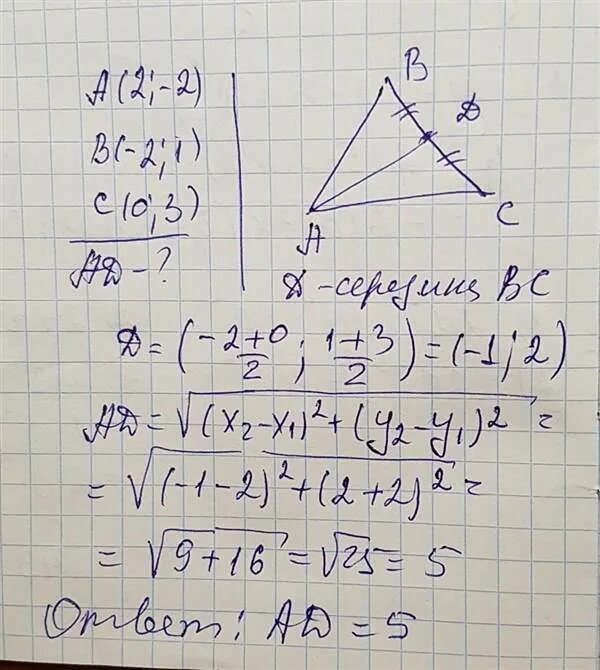 A(2;-2)
B(-2;1)
C(0;3)
AD-?
B
D
C
A
D-середина BC
D=(-2+0/2; 1+3/2)=(-1;2)
AD=√(x₂-x₁)²+(y₂-y₁)²=
=√(-1-2)²+(2+2)²=
=√9+16=√25=5
Ответ: AD=5